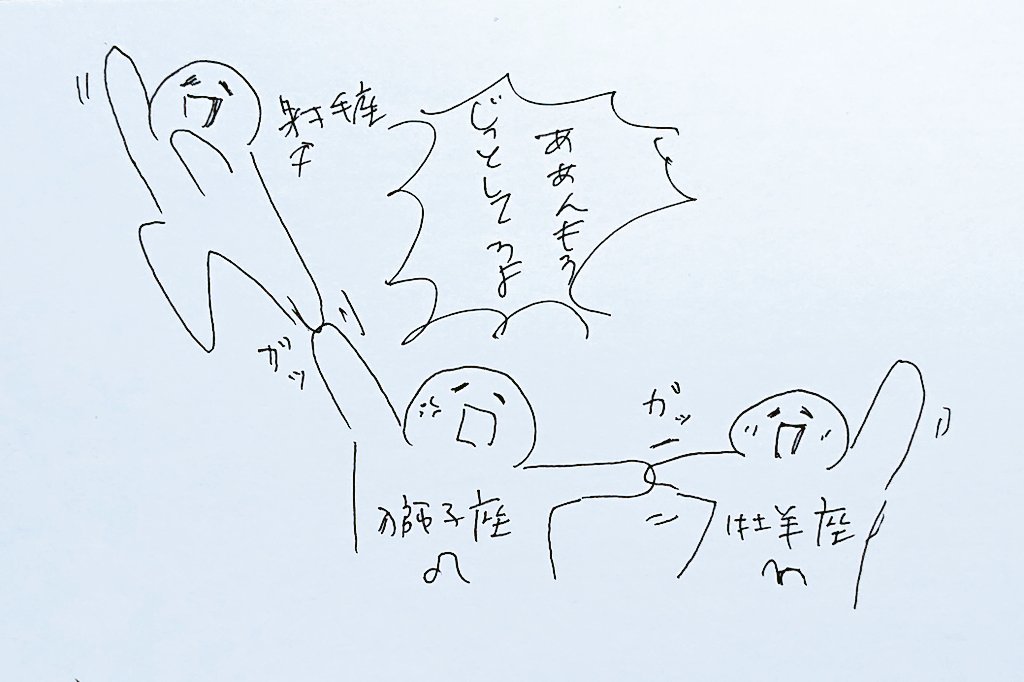 射手座
♐
ああんもう
じっとしてろよ
ガッ
ガッ
獅子座
♌
牡羊座
♈